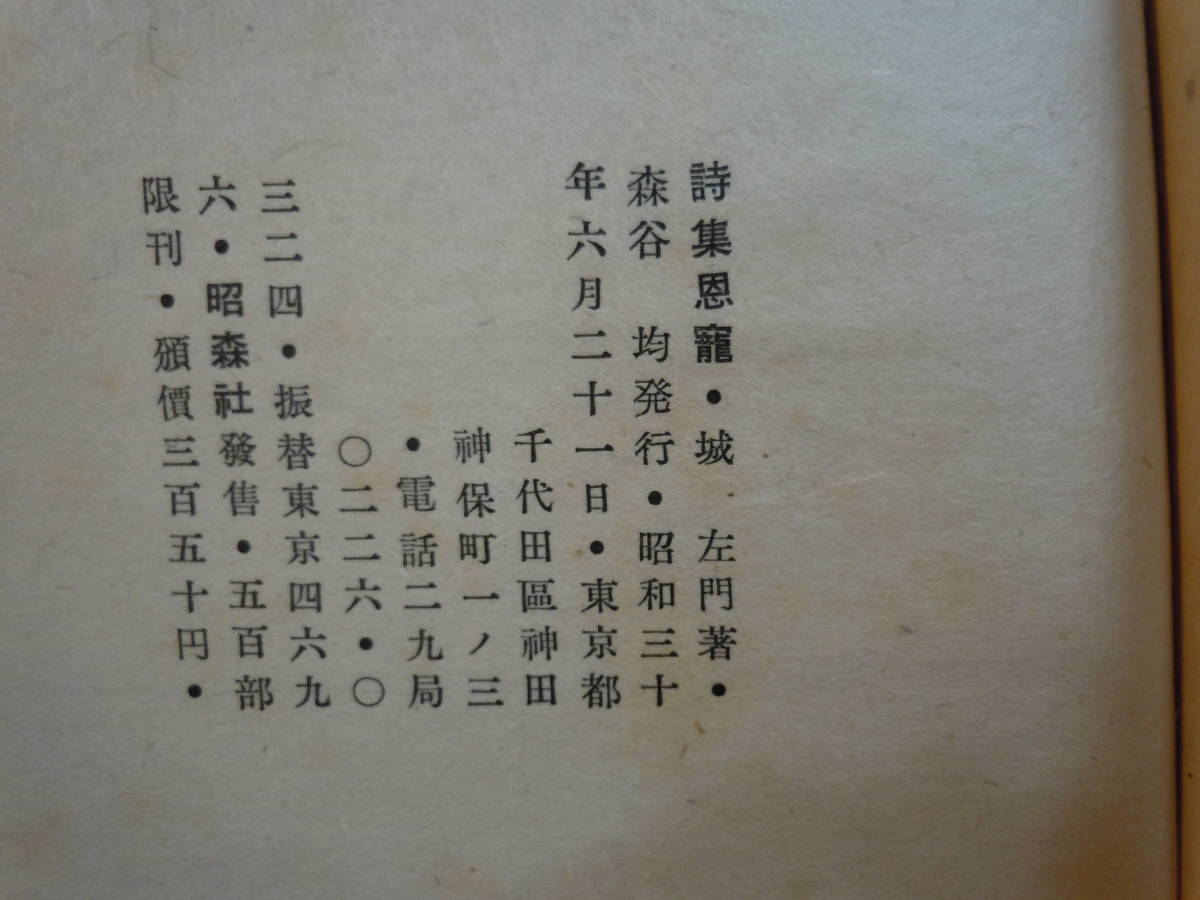 詩集恩寵・城　左門著・
森谷　均発行・昭和三十
年六月二十一日・東京都
千代田區神田
神保町一ノ三
・電話二九局
〇二二六・〇
三二四・振替東京四六九
六・昭森社發售・五百部
限刊・頒價三百五十円・